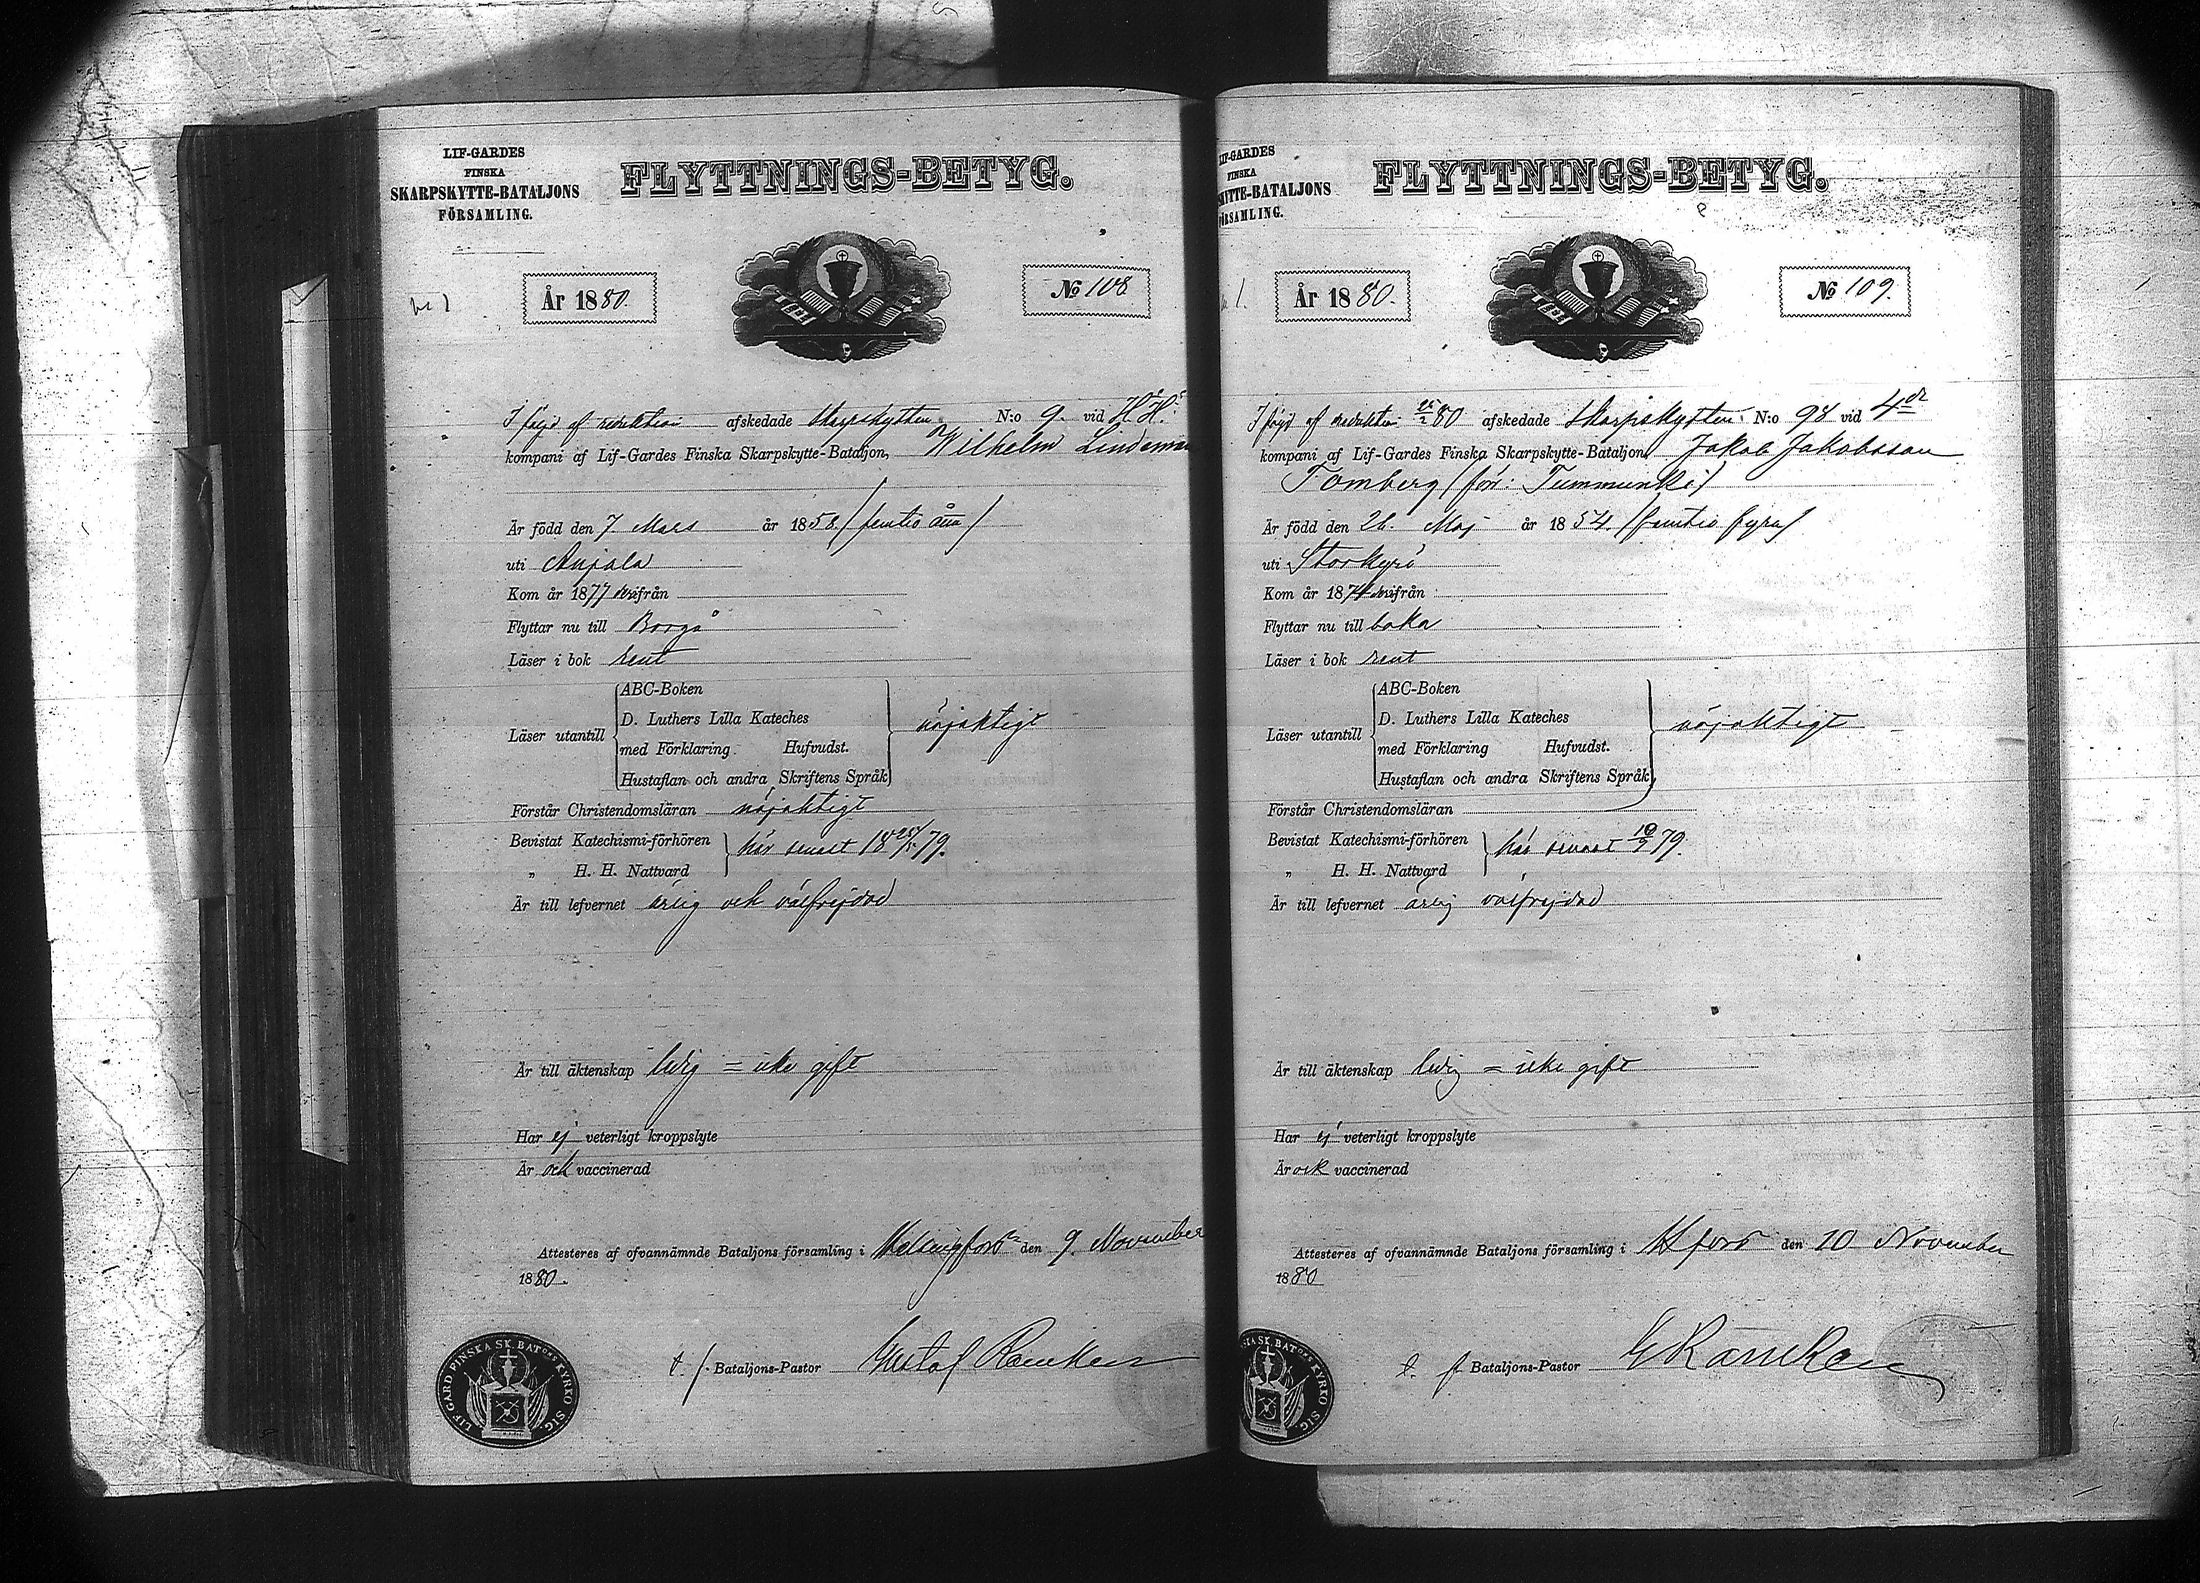 LIF-GARDES
FINSKA
SKARPSKYTTE-BATALJONS
FÖRSAMLING.
FLYTTNINGS-BETYG.
År 1880.
No 108
I följd af reduktion afskedade Skarpskytten N:o 9. vid H. H:s
kompani af Lif-Gardes Finska Skarpskytte-Bataljon, Wilhelm Lindeman
Är född den 7 Mars år 1858 / femtio åtta /
uti Anjala
Kom år 1877 derifrån
Flyttar nu till Borgå
Läser i bok rent
Läser utantill
ABC-Boken
D. Luthers Lilla Kateches
med Förklaring. Hufvudst.
Hustaflan och andra Skriftens Språk
nöjaktigt
Förstår Christendomsläran nöjaktigt
Bevistat Katechismi-förhören
„ H. H. Nattvard
här senast 79.
Är till lefvernet ärlig och välfrejdad
Är till äktenskap ledig = icke gift
Har ej veterligt kroppslyte
Är ock vaccinerad
Attesteres af ofvannämnde Bataljons församling i Helsingfors den 9. November
1880.
t. f. Bataljons-Pastor Gustaf Rancken
LIF. GARD. FINSKA SK. BAT:ONS KYRKO SIG.
LIF-GARDES
FINSKA
SKYTTE-BATALJONS
FÖRSAMLING.
FLYTTNINGS-BETYG.
År 1880.
No 109.
I följd af reduktion 80 afskedade Skarpskytten N:o 98 vid 4de
kompani af Lif-Gardes Finska Skarpskytte-Bataljon, Jakob Jakobsson
Tomberg / förr: Tummunki /
Är född den 26. Maj år 1854. / femtio fyra /
uti Storkyrö
Kom år 1874 derifrån
Flyttar nu till baka
Läser i bok rent
Läser utantill
ABC-Boken
D. Luthers Lilla Kateches
med Förklaring Hufvudst.
Hustaflan och andra Skriftens Språk
nöjaktigt
Förstår Christendomsläran
Bevistat Katechismi-förhören
„ H. H. Nattvard
här senast 79.
Är till lefvernet ärlig välfrejdad
Är till äktenskap ledig = icke gift
Har ej veterligt kroppslyte
Är ock vaccinerad
Attesteres af ofvannämnde Bataljons församling i Hfors den 10 November
1880
t. f. Bataljons-Pastor G Rancken
FINSKA SK. BAT:ONS KYRKO SIG.